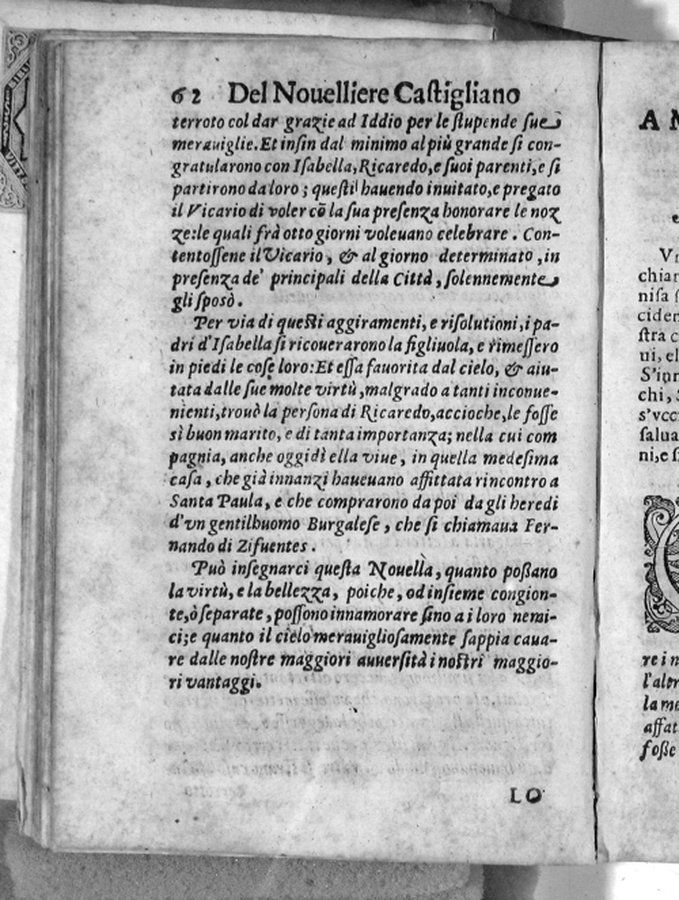 62 Del Nouelliere Castigliano
terroto col dar grazie ad Iddio per le stupende sue
merauiglie. Et insin dal minimo al più grande si con-
gratularono con Isabella, Ricaredo, e suoi parenti, e si
partirono da loro; questi hauendo inuitato, e pregato
il Vicario di voler cõ la sua presenza honorare le noz
ze: le quali frà otto giorni voleuano celebrare. Con-
tentossene il Vicario, & al giorno determinato, in
presenza de' principali della Città, solennemente
gli sposò.
Per via di questi aggiramenti, e risolutioni, i pa-
dri d'Isabella si ricouerarono la figliuola, e rimessero
in piedi le cose loro: Et essa fauorita dal cielo, & aiu-
tata dalle sue molte virtù, malgrado a tanti inconue-
nienti, trouò la persona di Ricaredo, accioche, le fosse
sì buon marito, e di tanta importanza; nella cui com
pagnia, anche oggidì ella viue, in quella medesima
casa, che già innanzi haueuano affittata rincontro a
Santa Paula, e che comprarono da poi da gli heredi
d'vn gentilhuomo Burgalese, che si chiamaua Fer-
nando di Zifuentes.
Può insegnarci questa Nouella, quanto possano
la virtù, e la bellezza, poiche, od insieme congion-
te, ò separate, possono innamorare sino a i loro nemi-
ci; e quanto il cielo merauigliosamente sappia caua-
re dalle nostre maggiori auuersità i nostri maggio-
ri vantaggi.
LO
A M
e
Vn
chiar
nisa s
ciden
stra c
ui, el
S'inn
chi, S
s'vcc
salua
ni, e s
re i n
l'alter
la me
affat
fosse